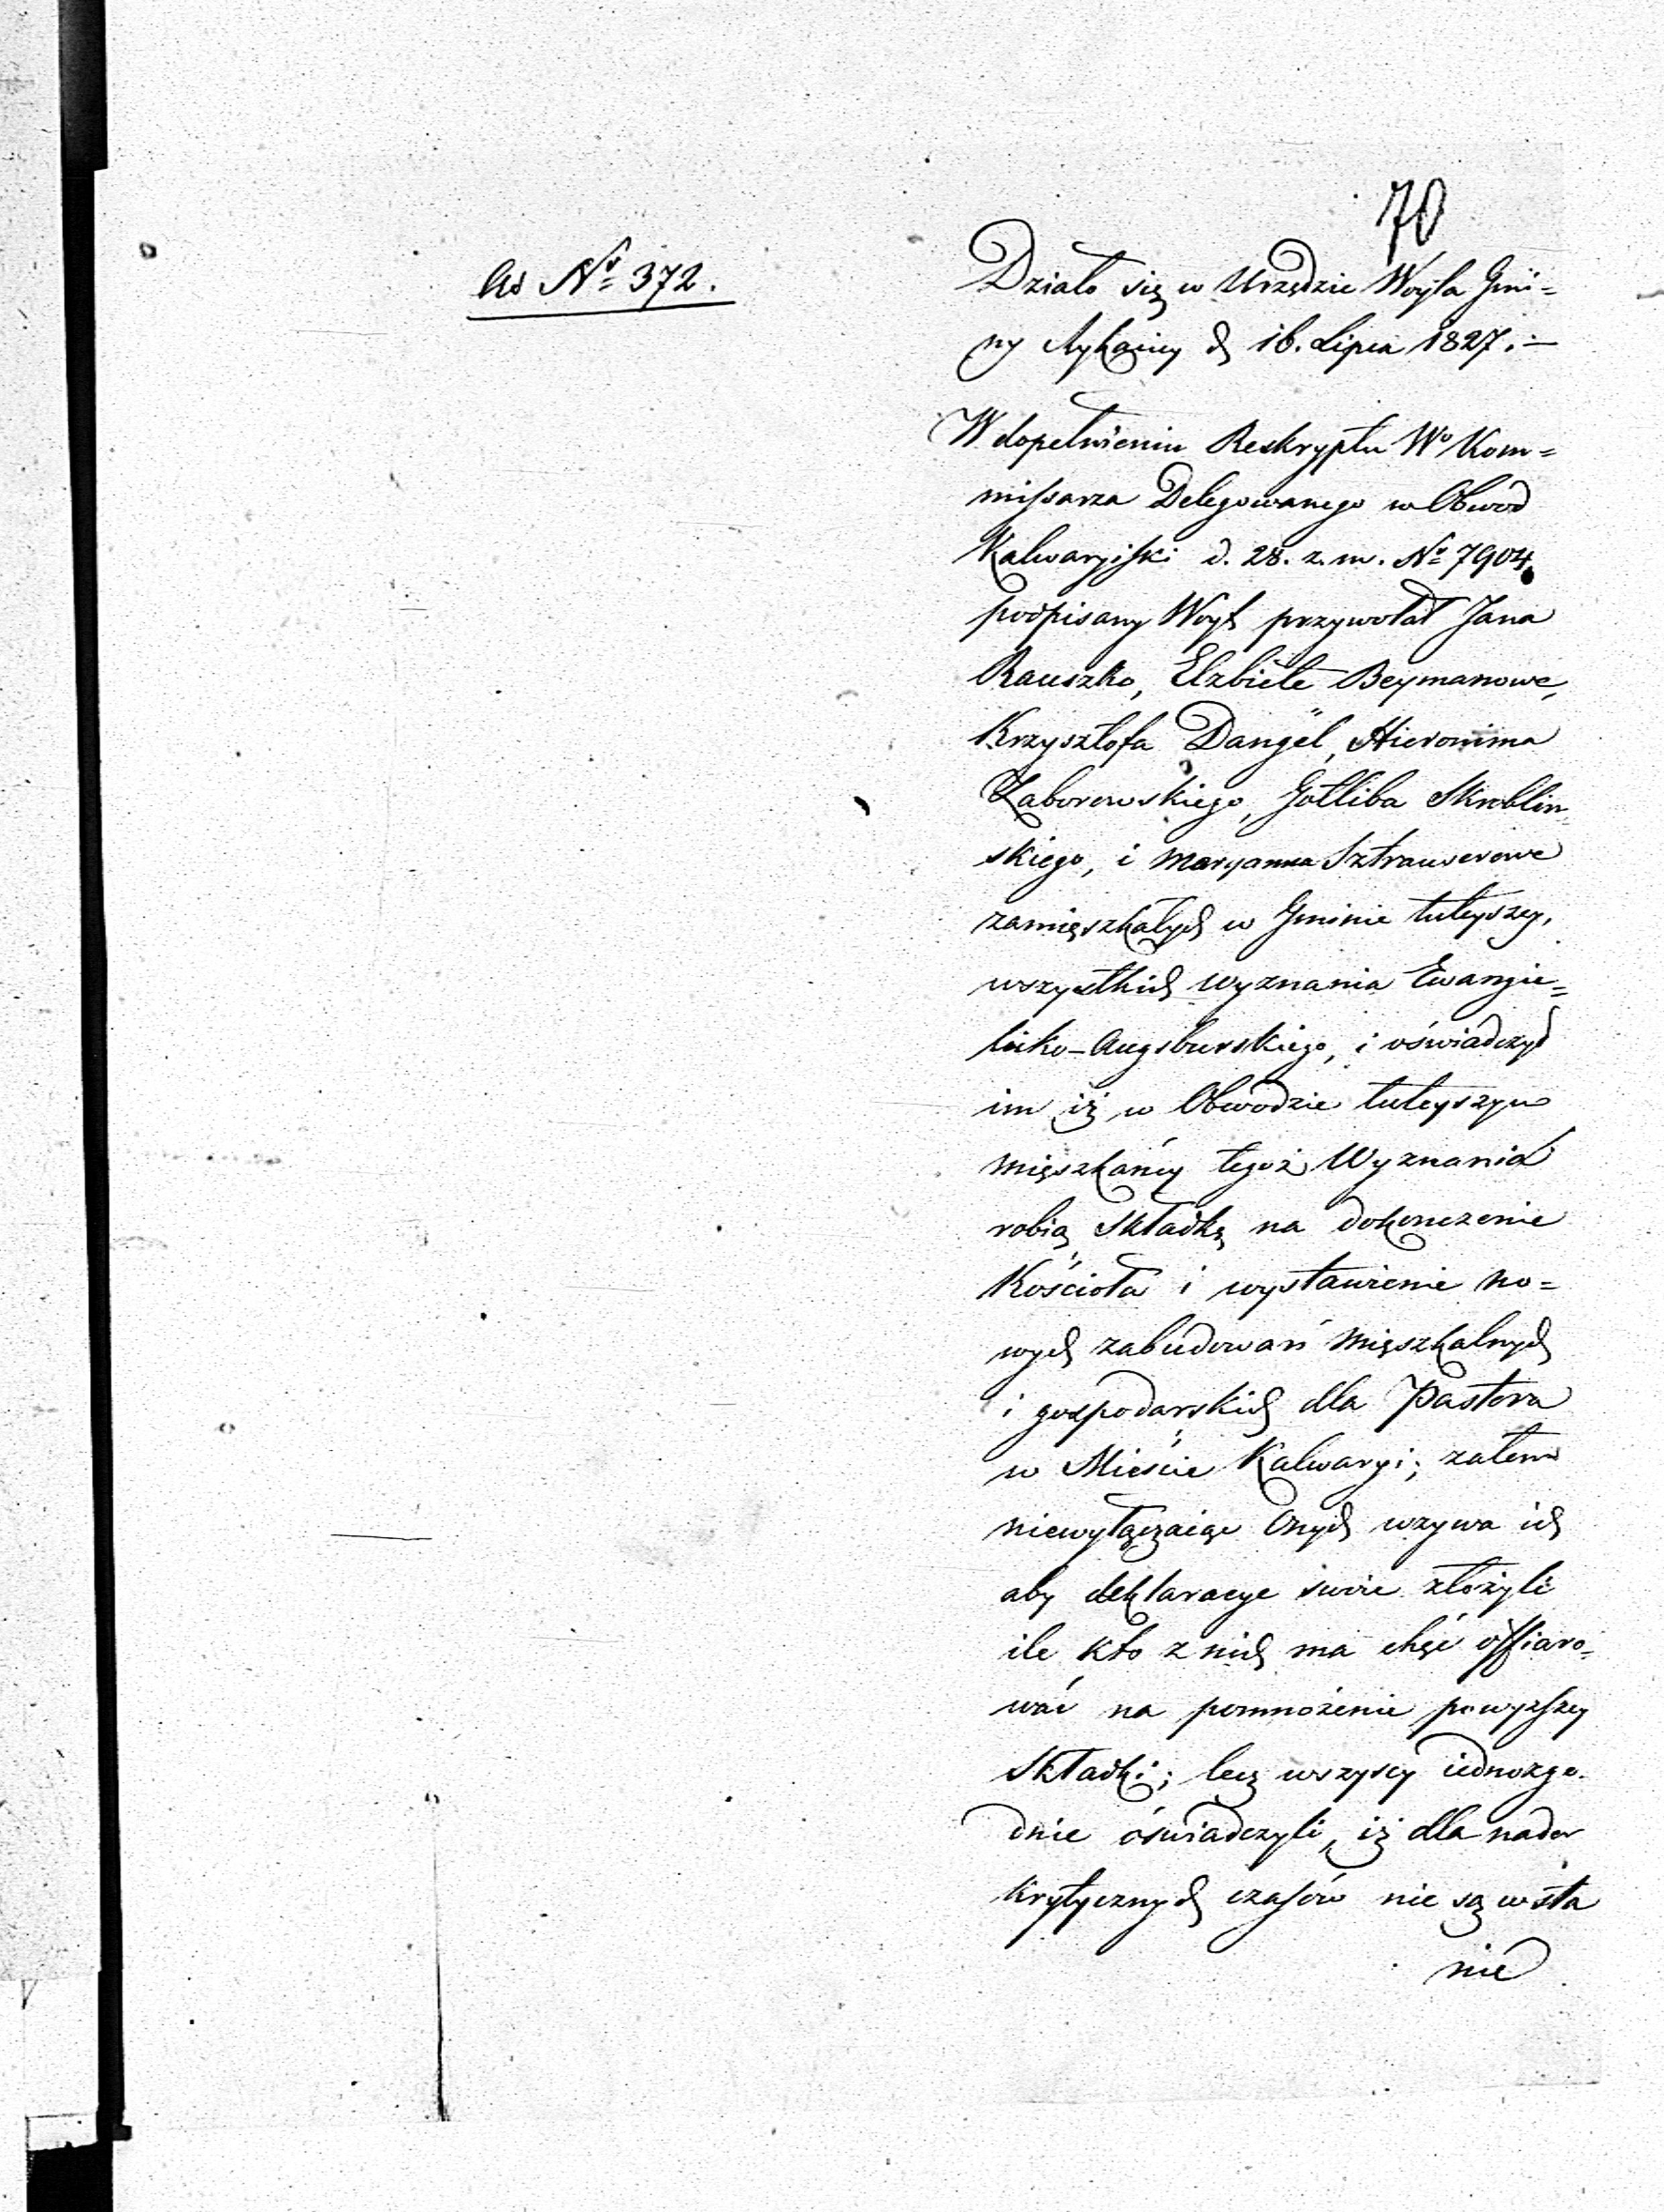 70
Ad No 372.
Działo się w Urzędzie Woyta Gmi=
ny d 16. Lipca 1827.
W dopełnieniu Reskryptu Wo Kom=
missarza Delegowanego w Obwód
Kalwaryiski d. 28. z. m. No 7904.
podpisany Woyt przywołał Jana
Rauszko, Elzbiete Beymanowe,
Krzysztofa Dangel, Hieronima
Zaborowskiego, Gotliba Skroblin
skiego, i Maryanna Sztrauserowe
zamięszkałych w Gminie tuteyszey,
wszystkich wyznania Ewangie=
licko-Augsburskiego, i oświadczył
im iż w Obwodzie tuteyszym
mięszkańcy tegoż Wyznania
robią składkę na dokonczenie
Kościoła i wystawienie no=
wych zabudowań mięszkalnych
i gospodarskich dla Pastora
w Mieście Kalwaryi; zatem
niewyłączaiąc Onych wzywa ich
aby deklaracye swoie złożyli
ile kto z nich ma chęć offiaro=
wać na pomnożenie powyższey
składki; lecz wszyscy iednozgo=
dnie oświadczyli, iż dla nader
krytycznych czasów nie są w sta
nie